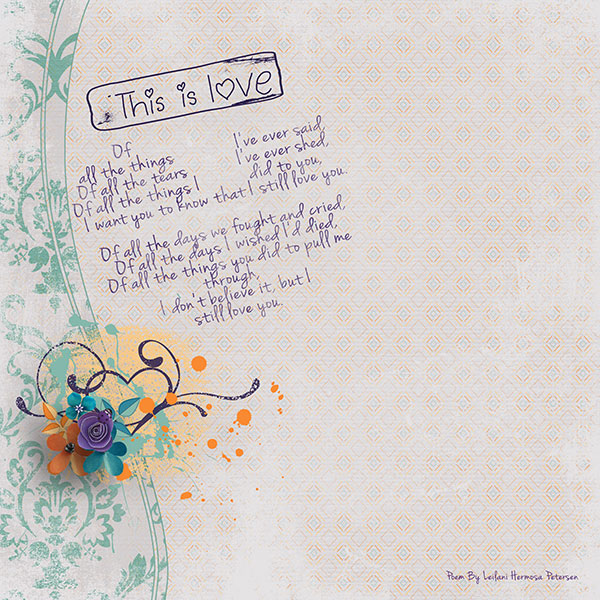 This is love
Of I've ever said,
all the things I've ever shed,
Of all the tears did to you,
Of all the things I
I want you to know that I still love you.
Of all the days we fought and cried,
Of all the days I wished I'd died,
Of all the things you did to pull me
through,
I don't believe it, but I
still love you.
Poem By Leilani Hermosa Petersen